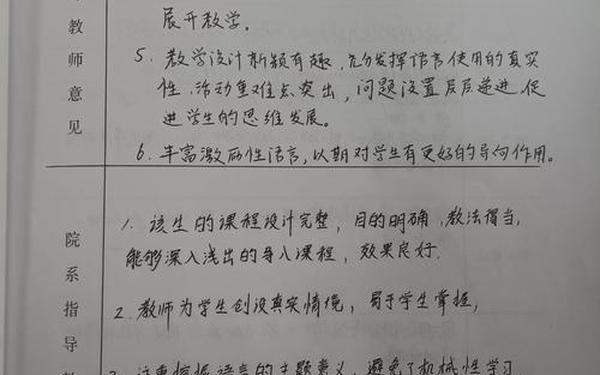 展开教学。
教师意见
5. 教学设计新颖有趣,充分发挥语言使用的真实
性,活动重难点突出,问题设置层层递进,促
进学生的思维发展。
6. 丰富激励性语言,以期对学生有更好的导向作用。
院系指导
1. 该生的课程设计完整,目的明确,教法得当,
能够深入浅出的导入课程,效果良好.
2. 教师为学生创设真实情境,易于学生掌握,
注重挖掘语言的主题意义,避免了机械性学习